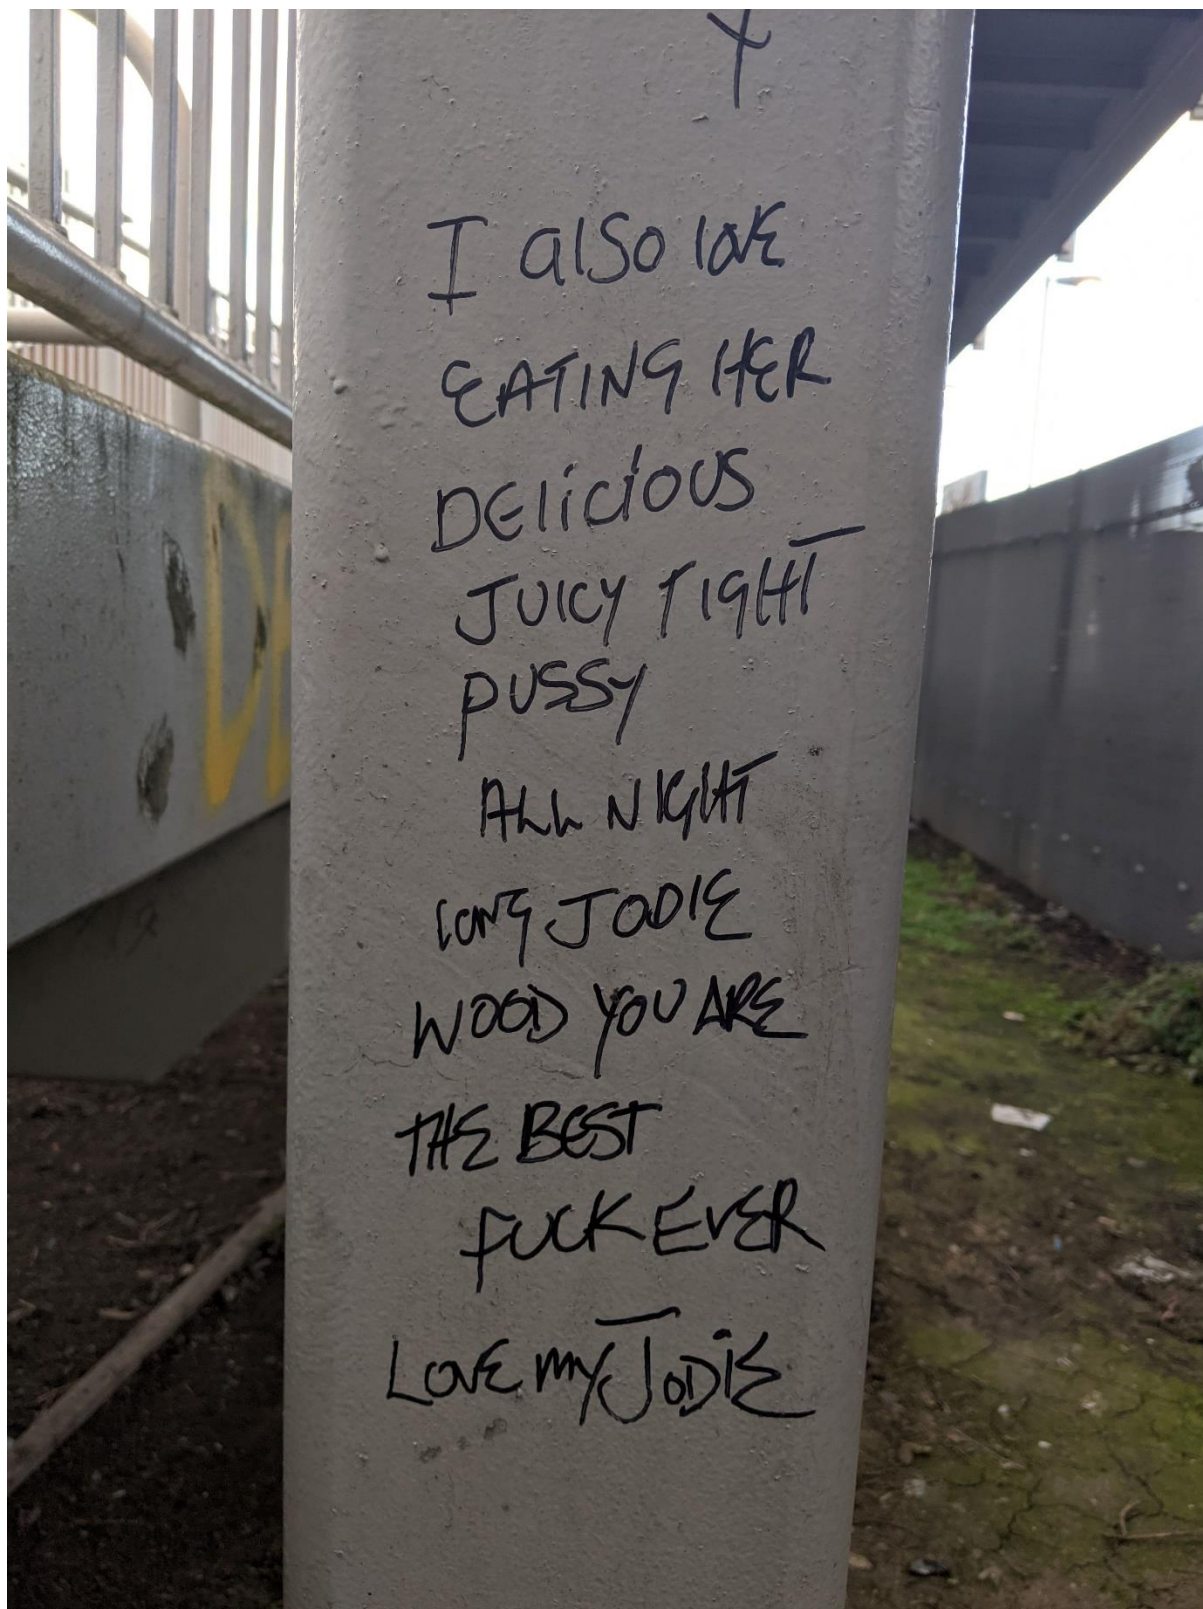 Y
I also love
EATING HER
DElicious
JUICY TIGHT
PUSSY
ALL NIGHT
LONG JODIE
WOOD YOU ARE
THE BEST
FUCK EVER
LOVE MY JODIE